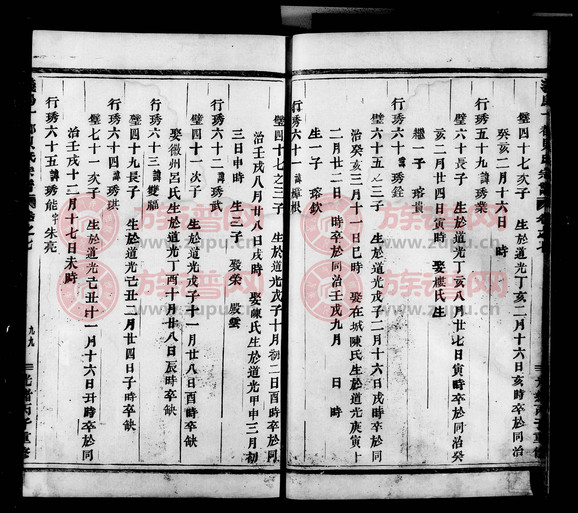 璧四十七次子 生於道光丁亥二月十六日亥時卒於同治
癸亥二月十六日 時
行琇五十九諱琇業
璧六十長子 生於道光丁亥八月廿七日寅時卒於同治癸
亥二月廿四日寅時 娶 氏生
繼一子 瑢貴
行琇六十諱琇銓
璧六十五之三子 生於道光戊子二月十六日戌時卒於同
治癸亥三月十一日巳時 娶在城陳氏生於道光庚寅十
二月廿二日 時卒於同治壬戌九月 日 時
生一子 瑢欽
行琇六十一諱 根
璧四十七之三子 生於道光戊子十月初二日酉時卒於同
治壬戌八月廿八日戌時 娶 氏生於道光甲申三月初
三日申時 生二子
行琇六十二諱琇武
璧四十一次子 生於道光戊子十一月廿八日酉時卒缺
娶徽州呂氏生於道光丁酉十月廿八日辰時卒缺
行琇六十三諱雙福
璧四十九長子 生於道光己丑二月廿四日子時卒缺
行琇六十四諱琇琪
璧七十一次子 生於道光己丑十一月十六日丑時卒於同
治壬戌十二月十七日未時
行琇六十五諱琇能字朱亮
卷之七
九九
光緒丙子重修
族谱网
www.zupu.cn